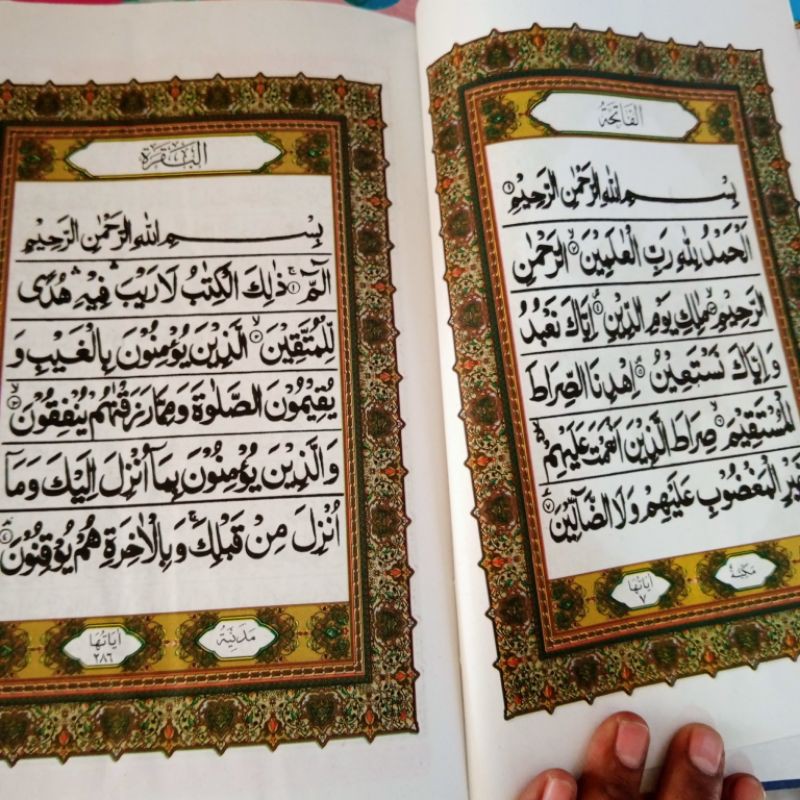 الفاتحة
بِسْمِ اللهِ الرَّحْمٰنِ الرَّحِيْمِ ۝١
اَلْحَمْدُ لِلّٰهِ رَبِّ الْعٰلَمِيْنَ ۝٢ الرَّحْمٰنِ
الرَّحِيْمِ ۝٣ مٰلِكِ يَوْمِ الدِّيْنِ ۝٤ اِيَّاكَ نَعْبُدُ
وَاِيَّاكَ نَسْتَعِيْنُ ۝٥ اِهْدِنَا الصِّرَاطَ
الْمُسْتَقِيْمَ ۝٦ صِرَاطَ الَّذِيْنَ اَنْعَمْتَ عَلَيْهِمْ
غَيْرِ الْمَغْضُوْبِ عَلَيْهِمْ وَلَا الضَّآلِّيْنَ ۝٧
مَكِّيَّة
اٰيَاتُهَا ٧
الْبَقَرَة
بِسْمِ اللهِ الرَّحْمٰنِ الرَّحِيْمِ
الٓمّٓ ۝١ ذٰلِكَ الْكِتٰبُ لَا رَيْبَ فِيْهِ هُدًى
لِّلْمُتَّقِيْنَ ۝٢ الَّذِيْنَ يُؤْمِنُوْنَ بِالْغَيْبِ وَ
يُقِيْمُوْنَ الصَّلٰوةَ وَمِمَّا رَزَقْنٰهُمْ يُنْفِقُوْنَ ۝٣
وَالَّذِيْنَ يُؤْمِنُوْنَ بِمَآ اُنْزِلَ اِلَيْكَ وَمَآ
اُنْزِلَ مِنْ قَبْلِكَ وَبِالْاٰخِرَةِ هُمْ يُوْقِنُوْنَ ۝٤
مَدَنِيَّة
اٰيَاتُهَا ٢٨٦